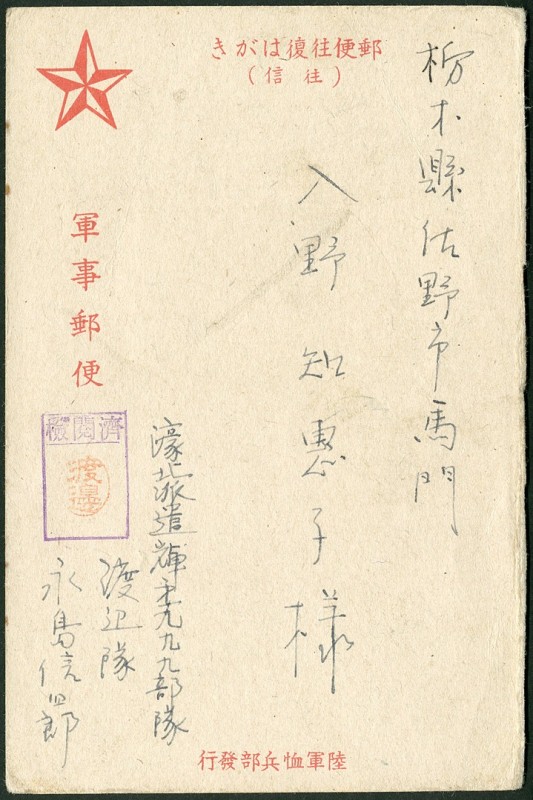 郵便往復はがき
（往信）
軍事郵便
栃木縣佐野市馬門
入野知惠子様
濠北派遣輝第九九九部隊
渡辺隊
永島信四郎
檢閲濟
渡邉
陸軍恤兵部發行